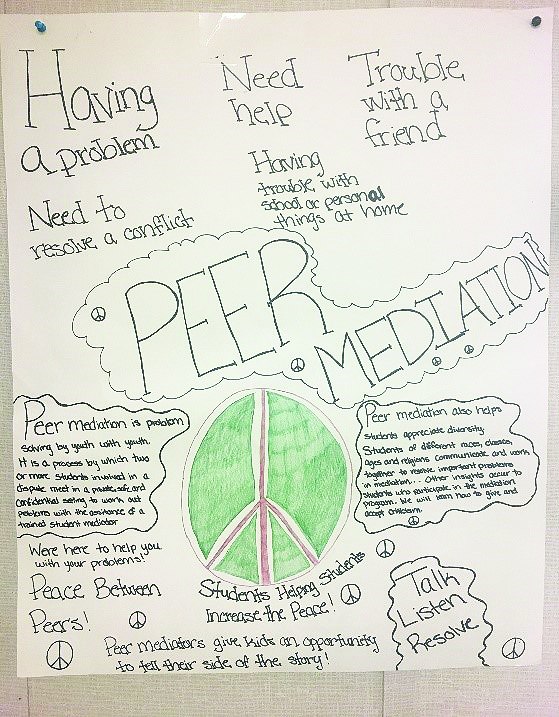 Having
a problem
Need
help
Trouble
with a
friend
Need to
resolve a conflict
Having
trouble with
school or personal
things at home
PEER
MEDIATION
Peer mediation is problem
solving by youth with youth.
It is a process by which two
or more students involved in a
dispute meet in a private, safe, and
confidential setting to work out
problems with the assistance of a
trained student mediator
Peer mediation also helps
students appreciate diversity.
Students of different races, classes,
ages and religions communicate and work
together to resolve important problems
in mediation... Other insights occur to
students who participate in the mediation
program. We will learn how to give and
accept criticism.
Were here to help you
with your problems!
Peace Between
Peers!
Students Helping Students
Increase the Peace!
Peer mediators give kids an opportunity
to tell their side of the story!
Talk
Listen
Resolve